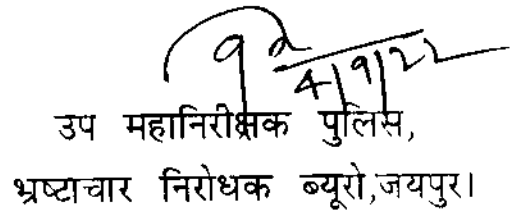 4/9/22
उप महानिरीक्षक पुलिस,
भ्रष्टाचार निरोधक ब्यूरो,जयपुर।